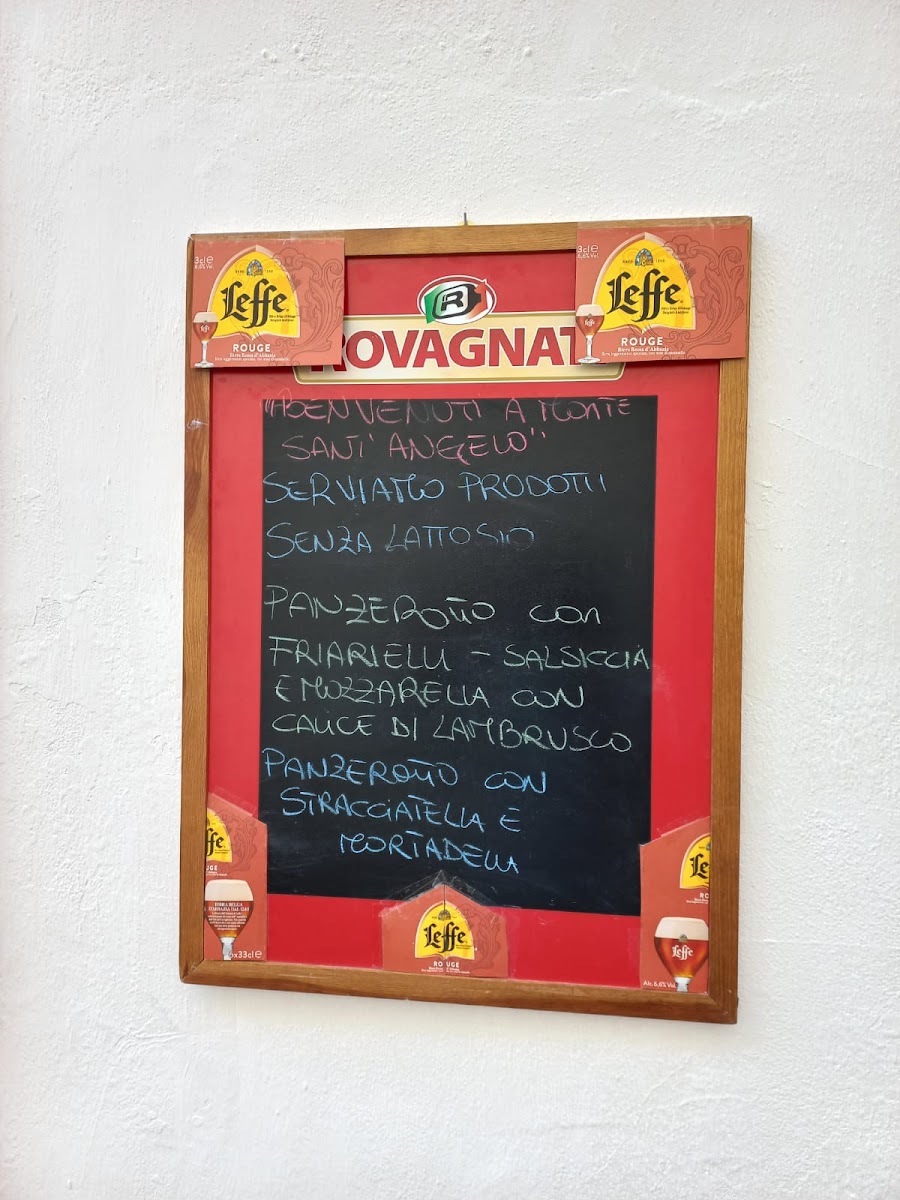 3cl e
6,6% Vol.
Leffe
ROUGE
Birra Rossa d'Abbazia
R
ROVAGNAT
3cl e
6,6% Vol.
Leffe
ROUGE
Birra Rossa d'Abbazia
"BENVENUTI A MONTE
SANT'ANGELO"
SERVIAMO PRODOTTI
SENZA LATTOSIO
PANZEROTTO CON
FRIARIELLI - SALSICCIA
E MOZZARELLA CON
CALICE DI LAMBRUSCO
PANZEROTTO CON
STRACCIATELLA E
MORTADELLA
ffe
UGE
x33cl e
Leffe
ROUGE
Le
RO
Leffe
Alc. 6,6% Vol.